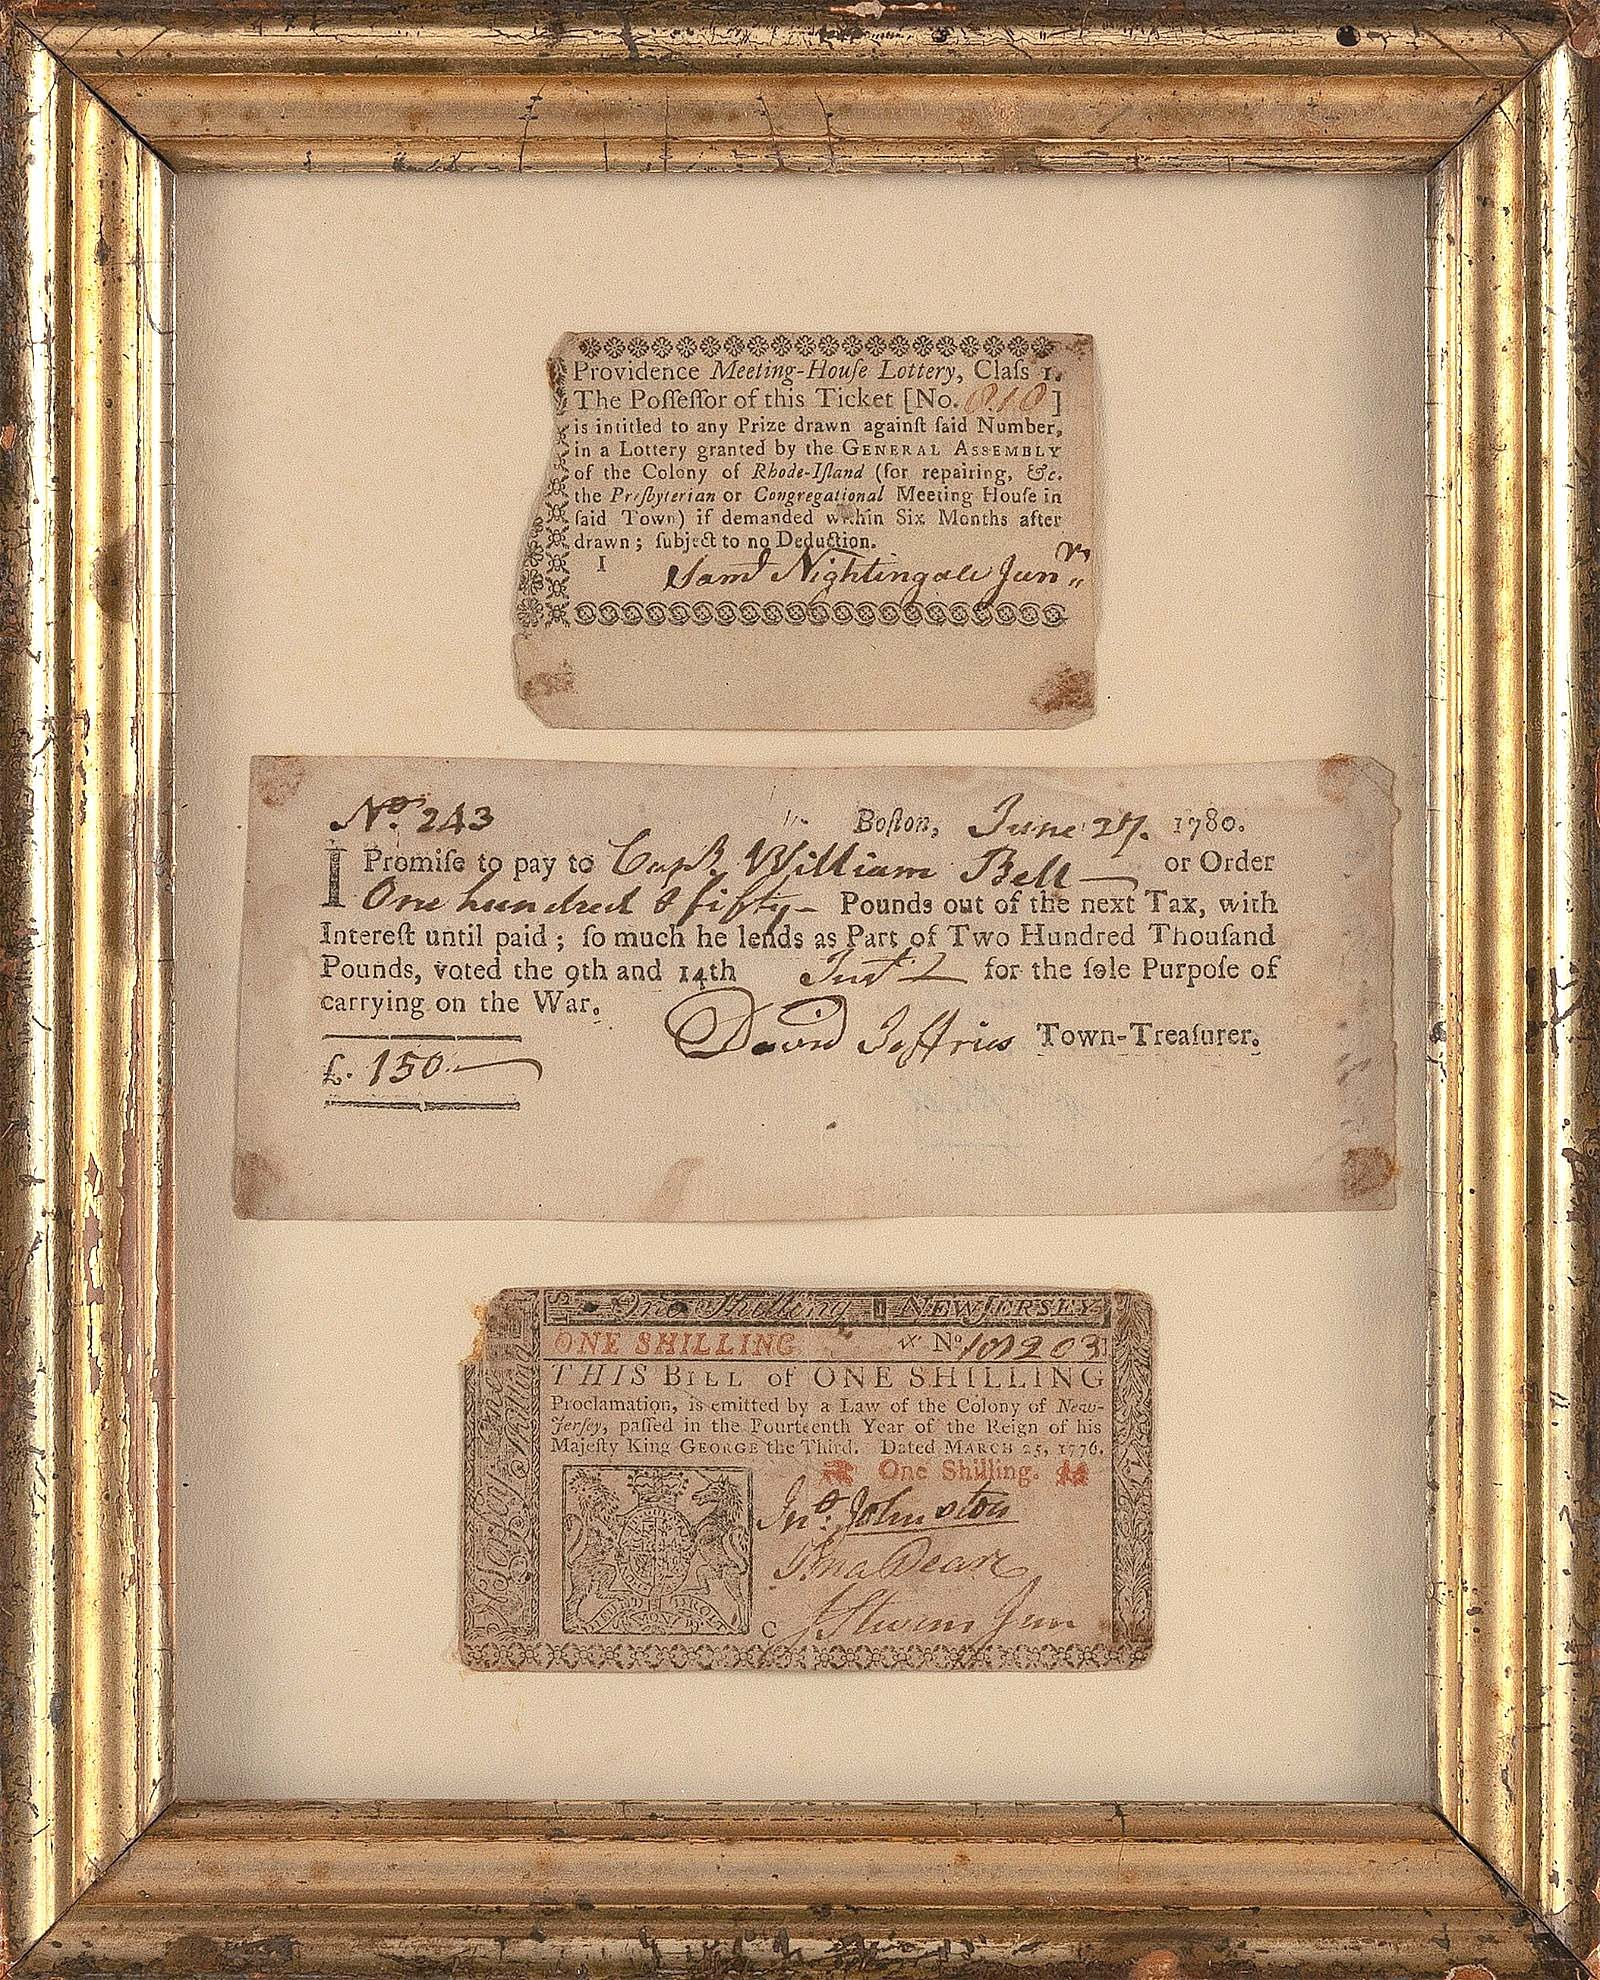 Providence Meeting-Houſe Lottery, Claſs 1.
The Poſſeſſor of this Ticket [No. 010]
is intitled to any Prize drawn againſt ſaid Number,
in a Lottery granted by the GENERAL ASSEMBLY
of the Colony of Rhode-Iſland (for repairing, &c.
the Preſbyterian or Congregational Meeting Houſe in
ſaid Town) if demanded within Six Months after
drawn; ſubject to no Deduction.
I Samˡ Nightingale Junʳ
Nº. 243 Boſton, June 27. 1780.
I Promiſe to pay to Capt. William Bell — or Order
One hundred & fifty – Pounds out of the next Tax, with
Intereſt until paid; ſo much he lends as Part of Two Hundred Thouſand
Pounds, voted the 9th and 14th Inst for the ſole Purpoſe of
carrying on the War.
David Jeffries Town-Treaſurer.
£. 150.—
One Shilling NEW JERSEY
ONE SHILLING Nº 101203]
THIS BILL of ONE SHILLING
Proclamation, is emitted by a Law of the Colony of New-
Jerſey, paſſed in the Fourteenth Year of the Reign of his
Majeſty King GEORGE the Third. Dated MARCH 25, 1776.
One Shilling.
Jnº. Johnston
C J Stevens Jun
One Shilling
N Jerſey